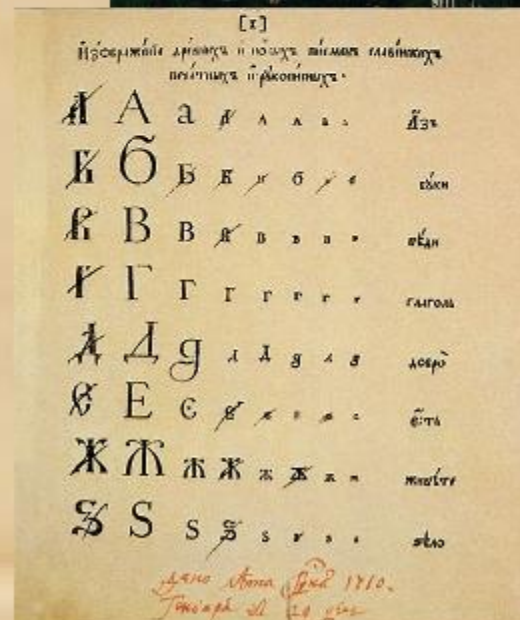 [1]
Изображенїе древнихъ и новыхъ писменъ славенскихъ
печатныхъ и рукописныхъ.
А А а А А А а а Азъ
Б Б Б Б Б б б б буки
В В В В В В В В вѣди
Г Г Г Г Г Г Г Г глаголь
Д Д д д Д д д д добро
Е Е є є є є є є єсть
Ж Ж ж Ж ж ж ж ж живѣте
Ѕ Ѕ ѕ Ѕ ѕ ѕ ѕ ѕ ѕѣло
дано лѣта 1710.